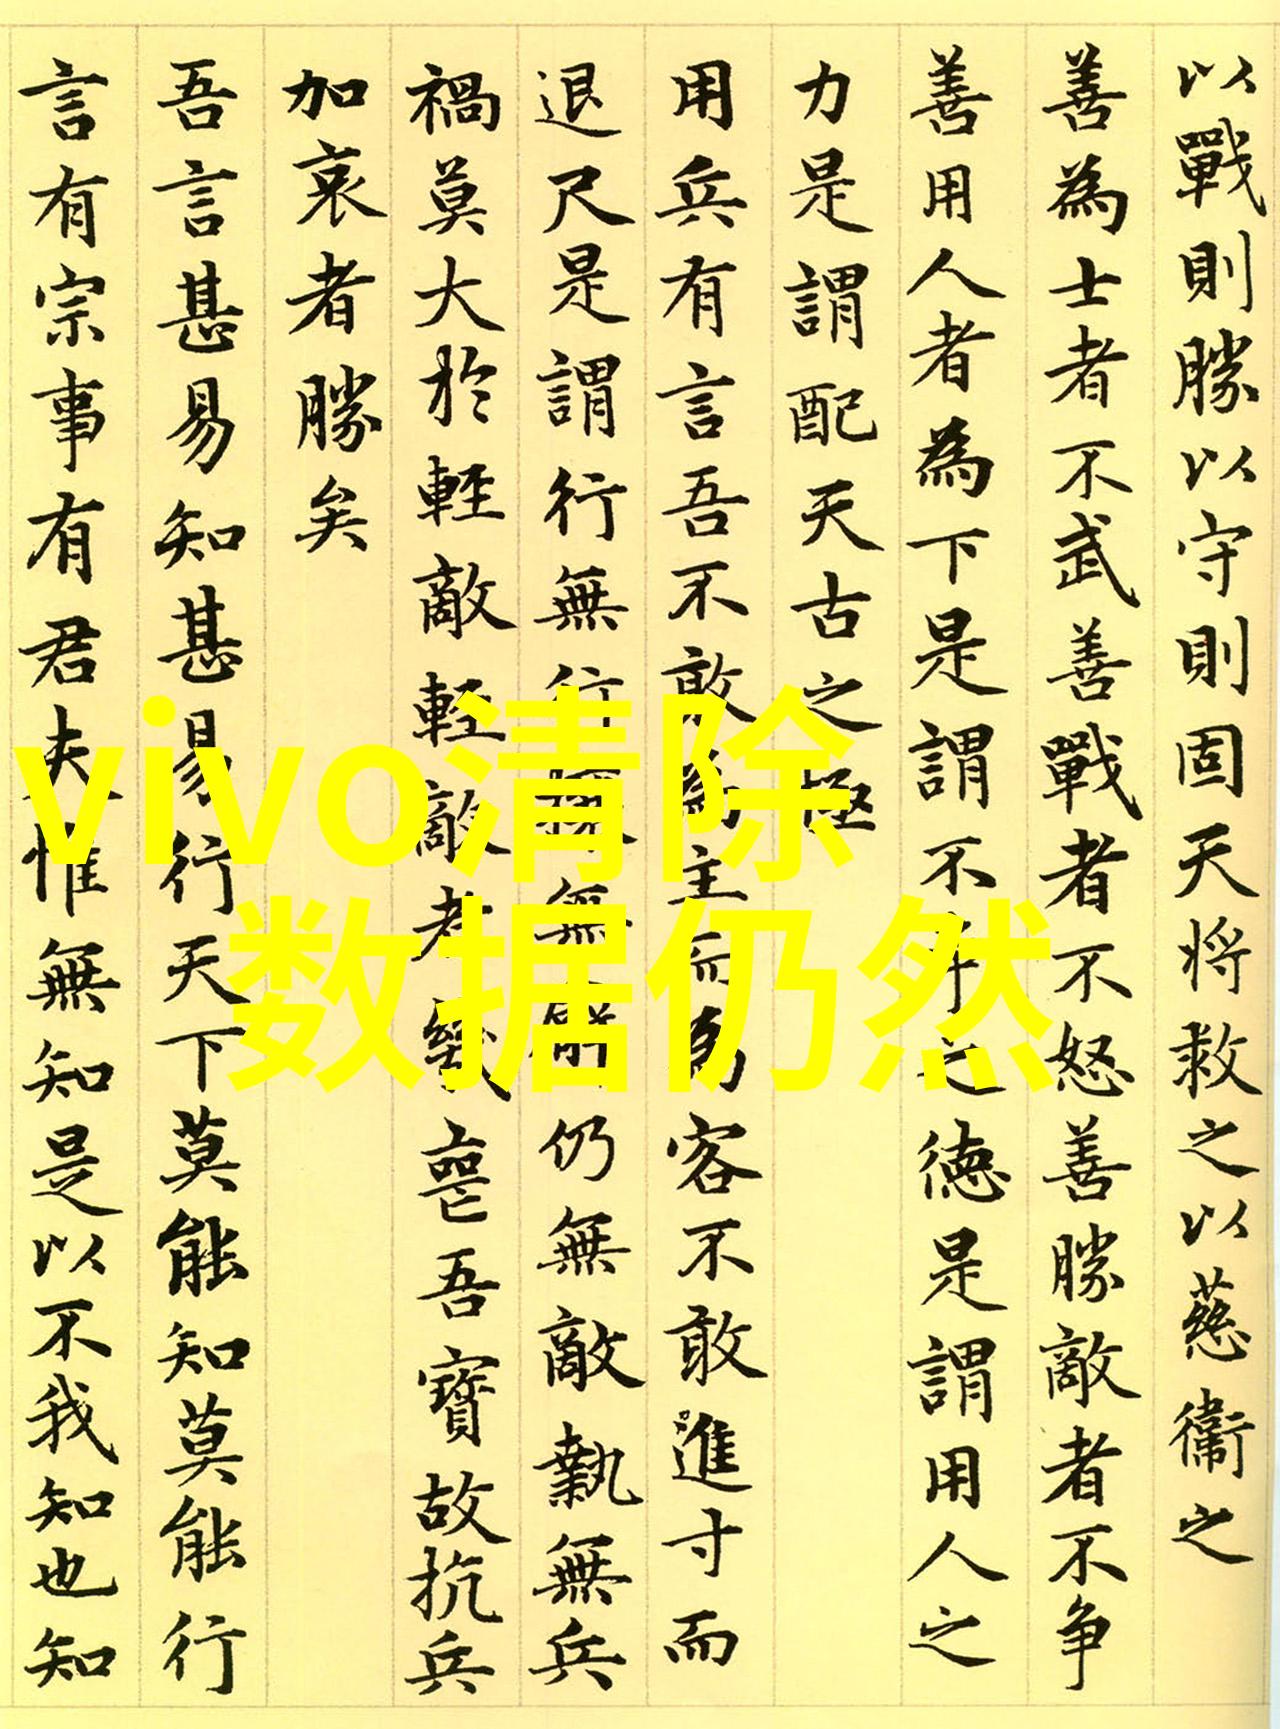 以戰則勝以守則固天將救之以慈衞之
善為士者不武善戰者不怒善勝敵者不争
善用人者為下是謂不争之德是謂用人之
力是謂配天古之極
用兵有言吾不敢為主而為客不敢進寸而
退尺是謂行無行攘無無解仍無敵執無兵
禍莫大於輕敵輕敵者幾喪吾寶故抗兵
加哀者勝矣
吾言甚易知甚易行天下莫能知莫能行
言有宗事有君夫惟無知是以不我知也知
vivo清除
数据仍然